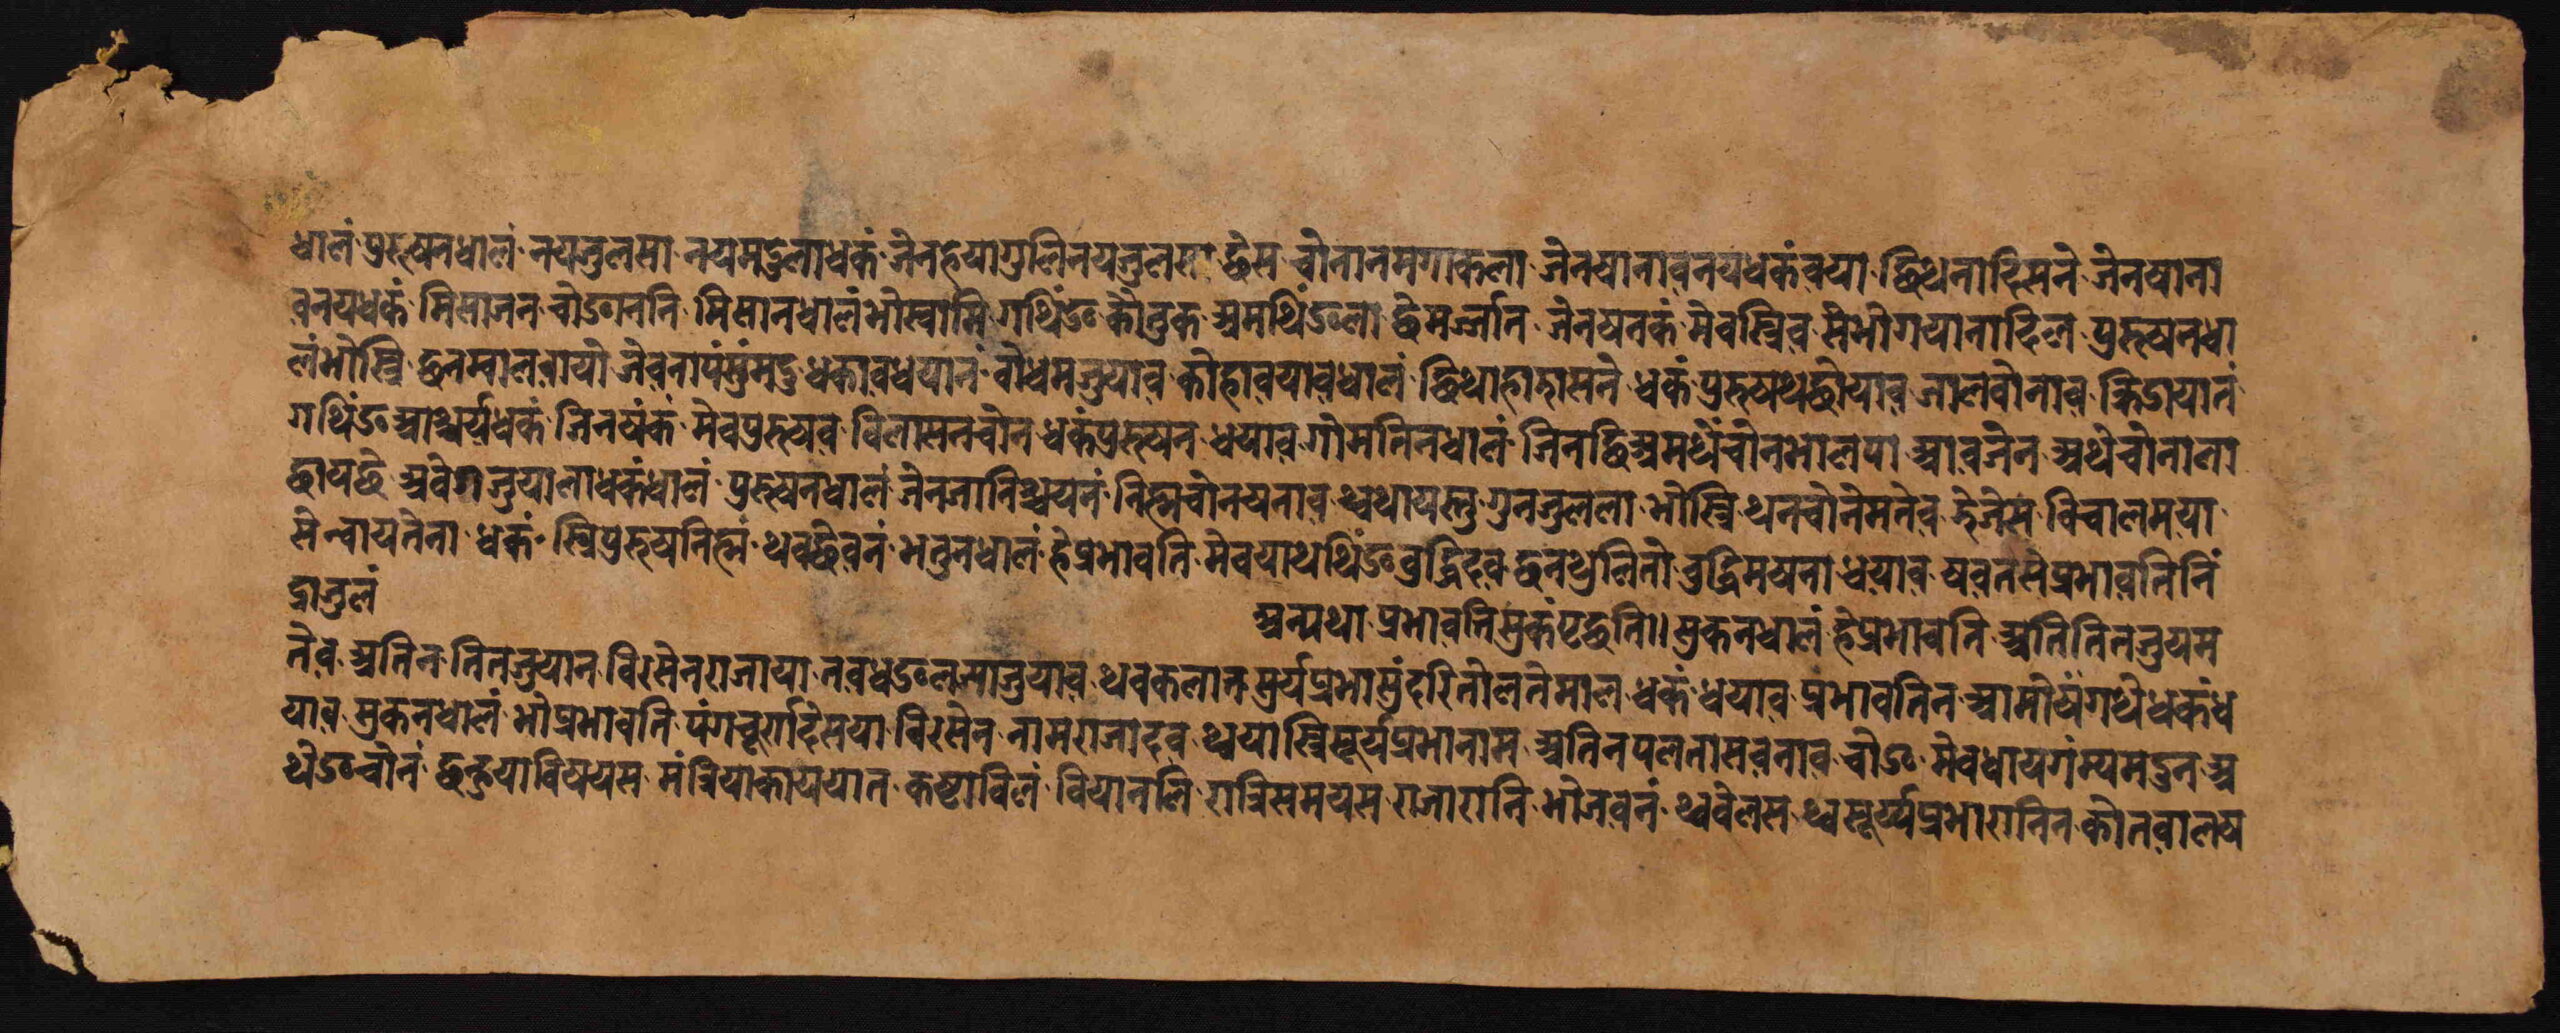 धालं पुरुषनधालं नयजुलसा नयमहुलाधकं जेनहेयागुलिनयजुलसा छेस चोनानमगाकला जेनयानावनयधकंवया छिथनादिसने जेनयाना
वनयधकं मिसाजन चोङाननि मिसानधालंभोस्वामि गथिंङ कौतुक अमथिंङला छेमज्जान जेनषनकं मेवस्त्रिव संभोगयानादिल पुरुषनधा
लंभोस्त्रि छनम्वालवायो जेवनापंसुंमदु धकावधयानं बोधमजुयाव कोहावयावधालं छिथाहाझासने धकं पुरुषथछोयाव जालवोनाव क्रिडायातं
गथिंङ आश्चर्यधकं जिनषंकं मेवपुरुषव विलासनचोन धकंपुरुषन धयाव गोमतिनधालं जिनछिअमथेंचोनभालपा आवजेन अथेचोनाला
छायछे अवेगजुयालाधकंधालं पुरुषनधालं जेनजानिश्चयनं निह्मचोनषनाव थ्वथायस्तु गुनजुलला भोस्त्रि थनचोनेमतेव झेजेस विचालमया
सेन्वायतेना धकं स्त्रिपुरुषनिह्मं थवछेवनं भतुनधालं हेप्रभावति मेवयाथथिंङ बुद्धिदव छनथुलितो बुद्धिमषना धयाव षवतसेप्रभावतिनिं
द्राजुलं अन्यथा प्रभावतिसुकंपृछति॥ सुकनधालं हेप्रभावति अतितितजुयम
तेव अतिन तितजुयान विरसेनराजाया तवधङलज्याजुयाव थवकलात सुर्यप्रभासुंदरितोलतेमाल धकं धयाव प्रभावतिन आमोषंगथे धकंध
याव सुकनधालं भोप्रभावति पंगचूर्रादेसया विरसेन नामराजादव थ्वयास्त्रिसूर्यप्रभानाम अतिनपलतासवनाव चोङ मेवधायगंम्यमदुन अ
थेङचोनं छन्हुयाविषयस मंत्रियाकाययात कष्टाविलं वियानलि रात्रिसमयस राजारानि भोजवनं थ्ववेलस थ्वसूर्य्यप्रभारानिन कोतवालय